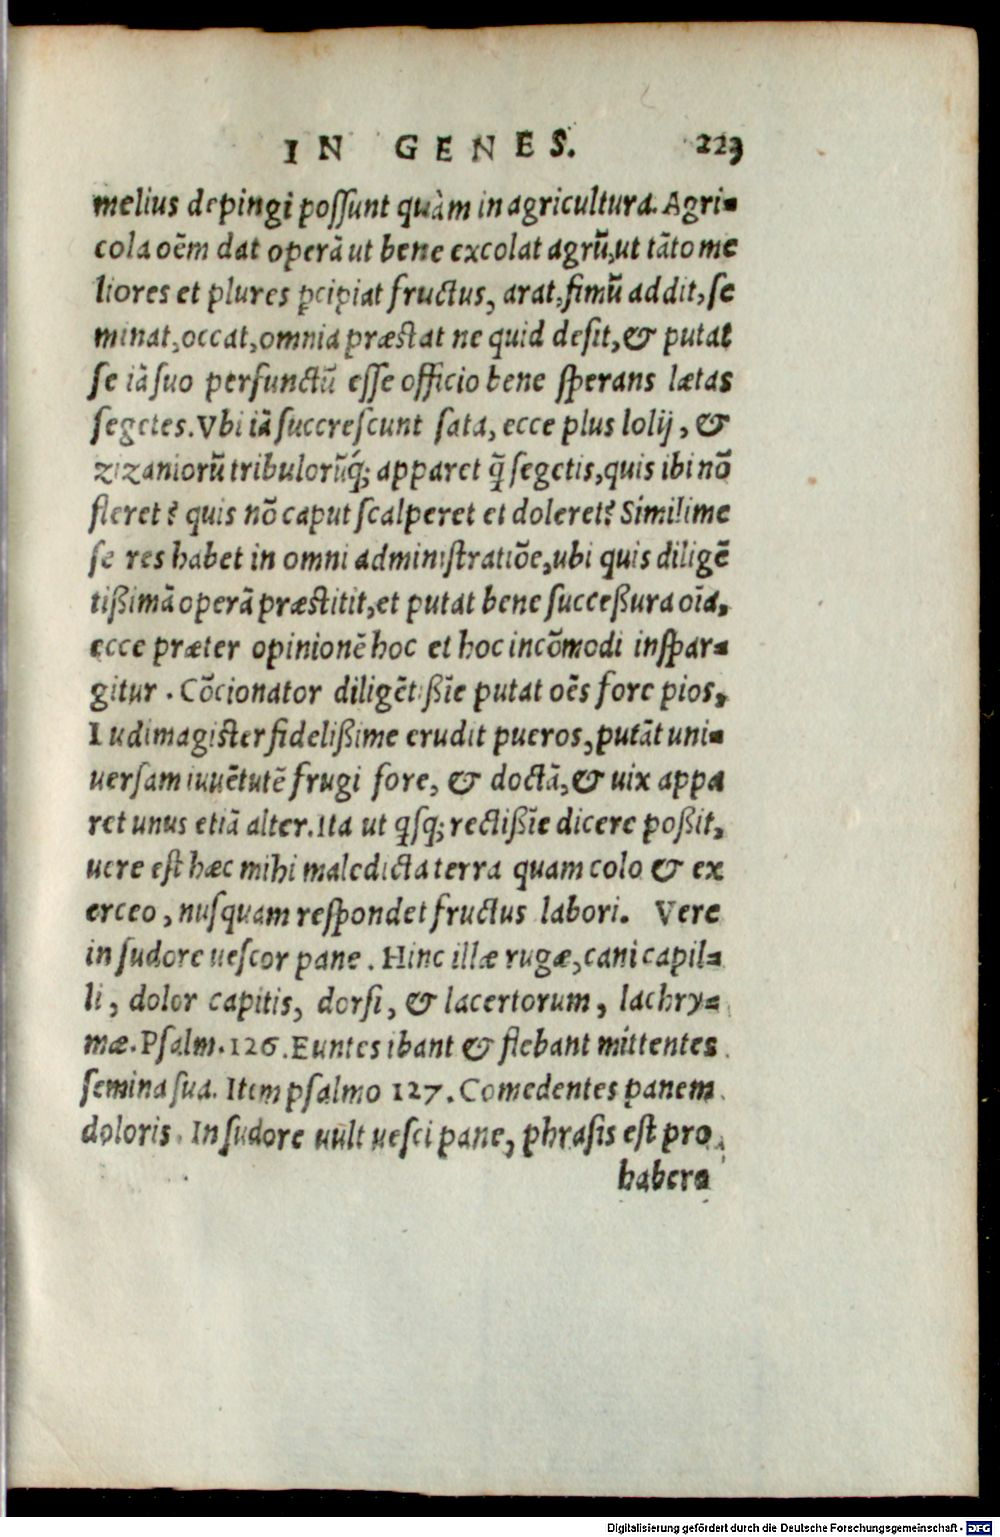 IN GENES. 223
melius depingi possunt quàm in agricultura. Agri-
cola oēm dat operā ut bene excolat agrū, ut tāto me
liores et plures pcipiat fructus, arat, fimū addit, se
minat, occat, omnia præstat ne quid desit, & putat
se iā suo perfunctū esse officio bene sperans lætas
segetes. Vbi iā succrescunt sata, ecce plus lolij, &
zizaniorū tribulorūq́; apparet q̄ segetis, quis ibi nō
fleret? quis nō caput scalperet et doleret? Similime
se res habet in omni administratiōe, ubi quis diligē
tißimā operā præstitit, et putat bene successura oīa,
ecce præter opinionē hoc et hoc incōmodi inspar-
gitur. Cōcionator diligētißīe putat oēs fore pios,
Iudimagister fidelißime erudit pueros, putāt uni-
uersam iuuētutē frugi fore, & doctā, & uix appa
ret unus etiā alter. Ita ut qsq; rectißīe dicere poßit,
uere est hæc mihi maledicta terra quam colo & ex
erceo, nusquam respondet fructus labori. Vere
in sudore uescor pane. Hinc illæ rugæ, cani capil-
li, dolor capitis, dorsi, & lacertorum, lachry-
mæ. Psalm. 126. Euntes ibant & flebant mittentes
semina sua. Item psalmo 127. Comedentes panem
doloris. In sudore uult uesci pane, phrasis est pro
habere
Digitalisierung gefördert durch die Deutsche Forschungsgemeinschaft - DFG